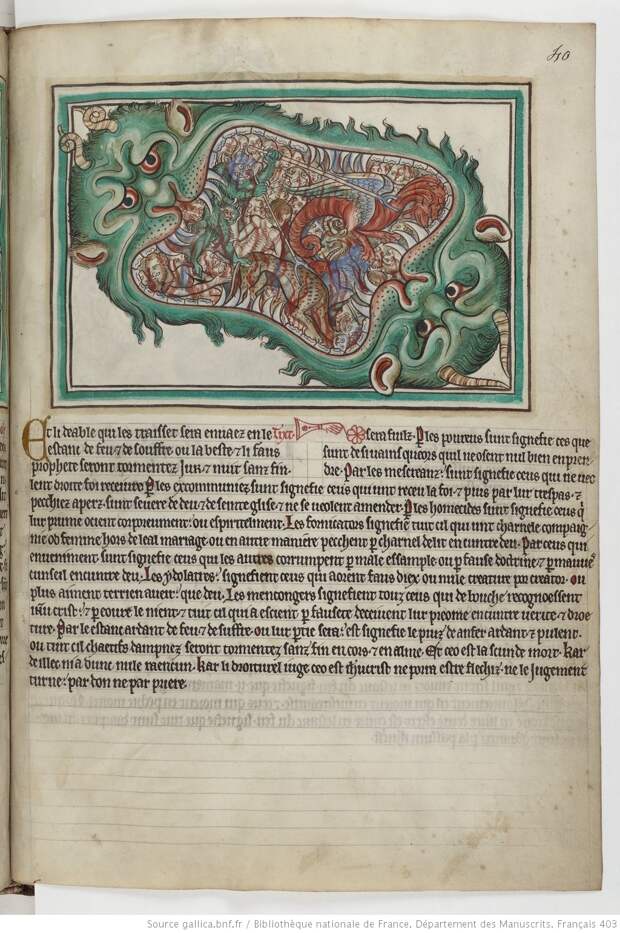 40
Et li deable qui les traisset sera enuaez en le Text sera finiz. Les poureus sunt signefie ceus que
estanc de feu & de souffre ou la beste & li faus sunt de si uains quors quil ne osent nul bien enpren
prophete seront tormentez iurs & nuit sanz fin dre. Par les mescreanz sunt signefie ceus ki ne
lent droite foi receuoir. Par les excommuniez sunt signefie ceus qui unt receu la foi & puis par lur trespas &
pecchiez aperz sunt seuere de deu & de seinte glise & ne se uoelent amender. Les homecides sunt signefie ceus qui
lur prume ocient corporeument ou espiritelment. Les fornicators signefie tuit cil qui unt charnele compaig
nie od femme hors de leal mariage ou en autre maniere pecchent par charnel delit encuntre deu. Par ceus qui
enueniment sunt signefie ceus qui les autres corrumpent par male essample ou par fause doctrine & par mauueis
cunseil encuntre deu. Les ydolatres signefient ceus qui aorent faus diex ou nule creature por creator ou
plus aiment terrien aueir que deu. Les mencongers signefient touz ceus qui de bouche recognoessent
ihesu crist & par coure le ment & tuit cil qui a escient par fausete deceiuent lur proeome encuntre uerite & droi
ture. Par le estanc ardant de feu & de suffre ou lur partie sera est signefie le puiz de anfer ardant & pulent
ou tuit cil chaerifs dampnez seront tormentez sanz fin en cors & en alme. Et ceo est la secunde mort. Kar
de illec ni a nune nule raencun. Kar li droiturel iuge ceo est ihesucrist ne porra estre flechiz ne le iugement
turne par don ne par priere.
Source gallica.bnf.fr / Bibliothèque nationale de France. Département des Manuscrits. Français 403